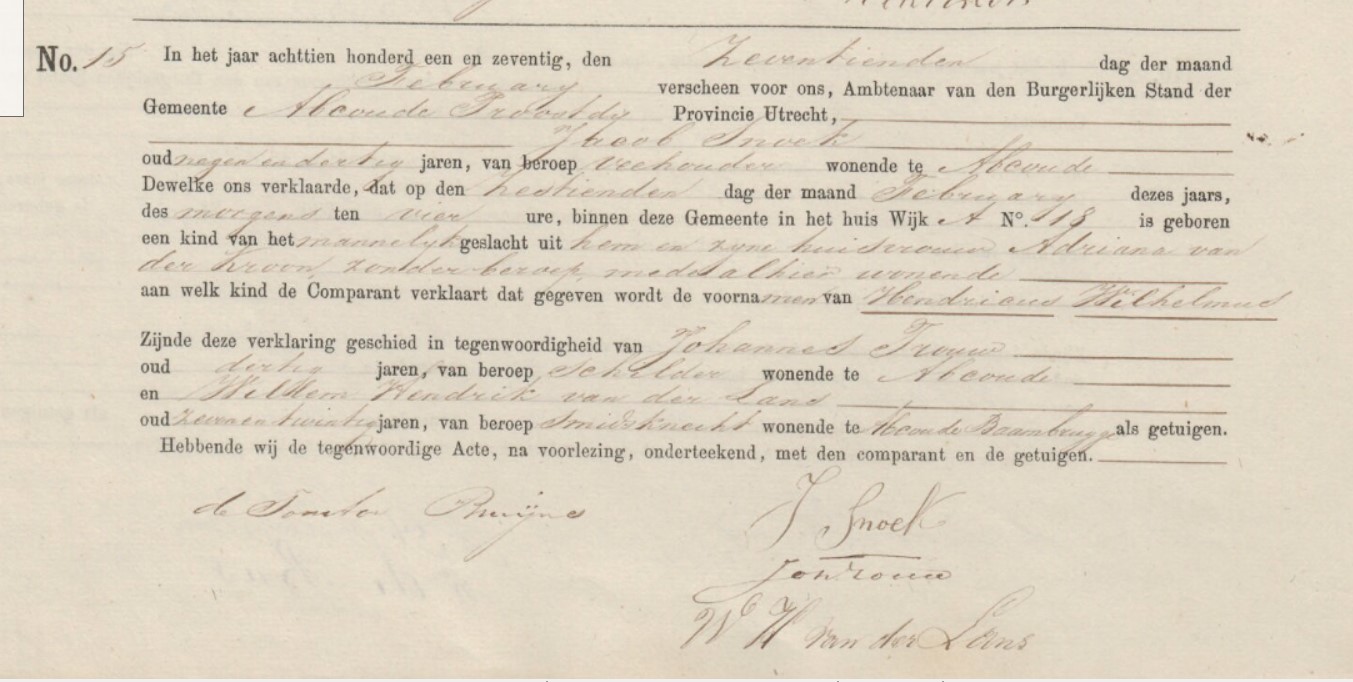 No. 15 In het jaar achttien honderd een en zeventig, den Zeventienden dag der maand
February verscheen voor ons, Ambtenaar van den Burgerlijken Stand der
Gemeente Abcoude Proostdy Provincie Utrecht,
Jacob Snoek
oud negen en dertig jaren, van beroep veehouder wonende te Abcoude
Dewelke ons verklaarde, dat op den zestienden dag der maand February dezes jaars,
des morgens ten vier ure, binnen deze Gemeente in het huis Wijk A No. 118 is geboren
een kind van het mannelyk geslacht uit hem en zyne huisvrouw Adriana van
der Kroon, zonder beroep, mede alhier wonende
aan welk kind de Comparant verklaart dat gegeven wordt de voornamen van Hendricus Wilhelmus
Zijnde deze verklaring geschied in tegenwoordigheid van Johannes Trouw
oud dertig jaren, van beroep Schilder wonende te Abcoude
en Willem Hendrik van der Lans
oud zeven en twintig jaren, van beroep Smidsknecht wonende te Abcoude Baambrugge als getuigen.
Hebbende wij de tegenwoordige Acte, na voorlezing, onderteekend, met den comparant en de getuigen.
J Snoek
Joh Trouw
W H van der Lans